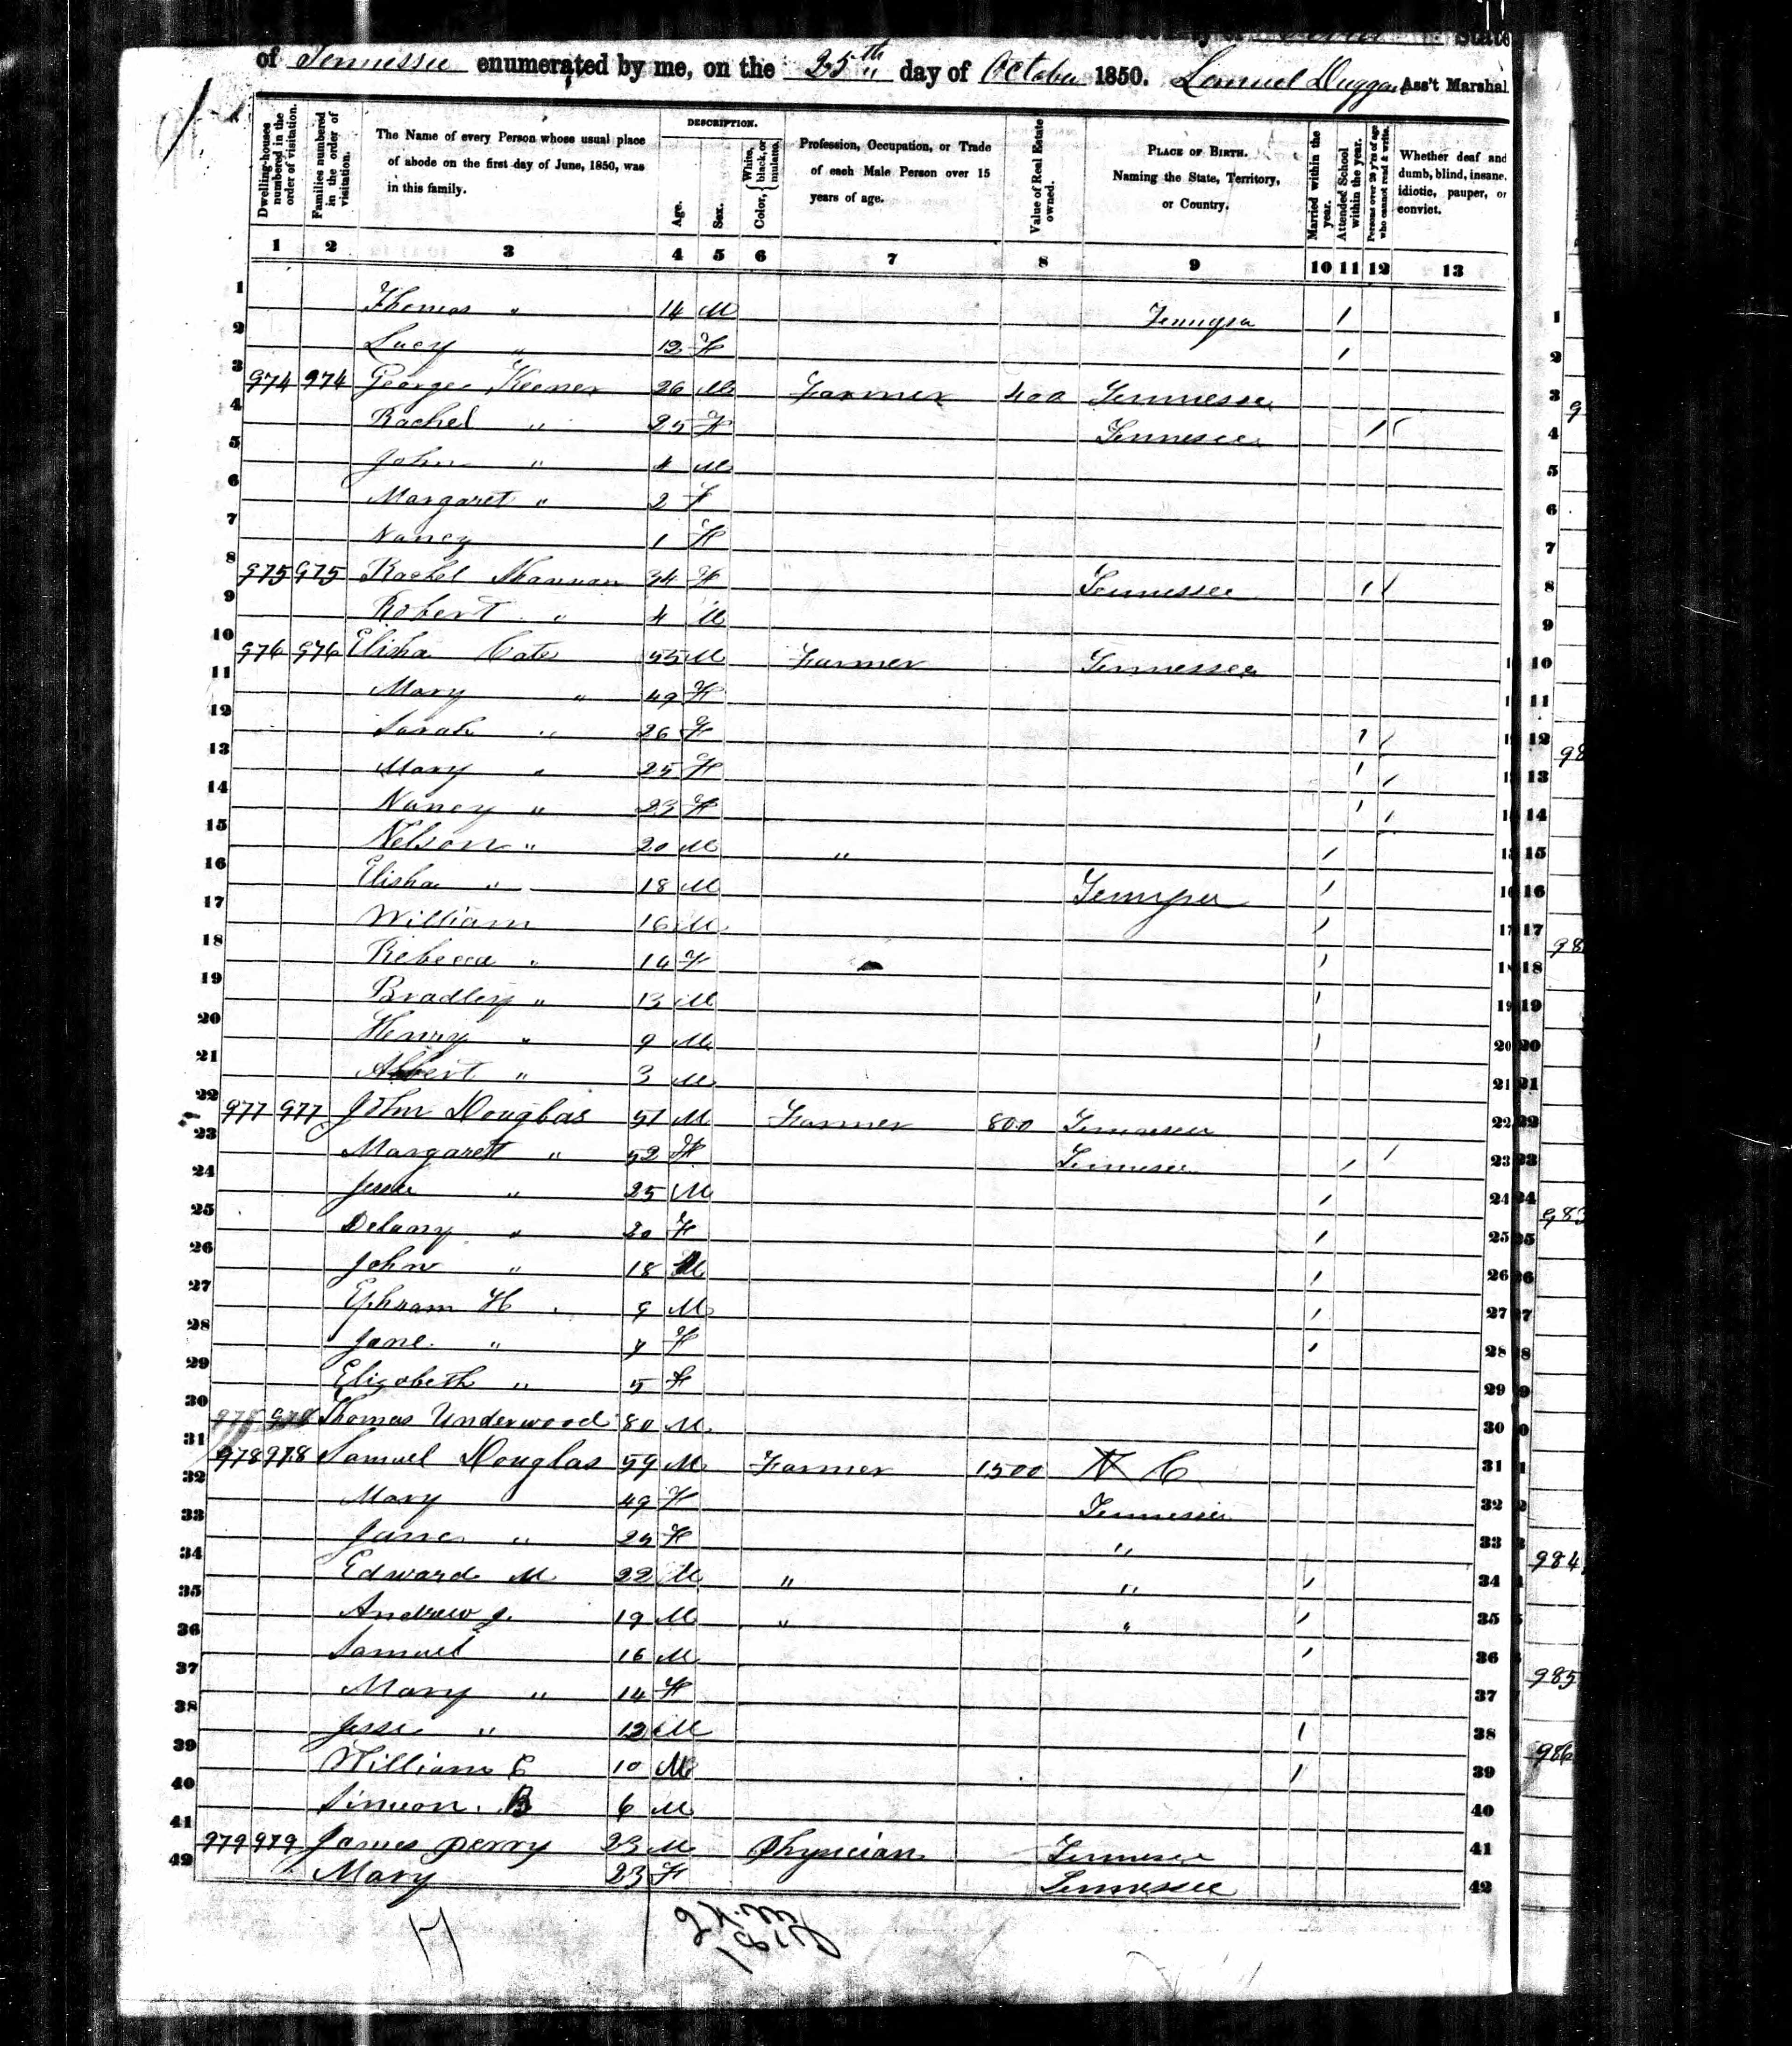 State
of Tennessee enumerated by me, on the 25th day of October 1850. Lemuel Duggan Ass't Marshal.
Dwelling-houses numbered in the order of visitation.
Families numbered in the order of visitation.
The Name of every Person whose usual place of abode on the first day of June, 1850, was in this family.
DESCRIPTION.
Age.
Sex.
Color, { White, black, or mulatto.
Profession, Occupation, or Trade of each Male Person over 15 years of age.
Value of Real Estate owned.
PLACE OF BIRTH. Naming the State, Territory, or Country.
Married within the year.
Attended School within the year.
Persons over 20 y'rs of age who cannot read & write.
Whether deaf and dumb, blind, insane, idiotic, pauper, or convict.
1 2 3 4 5 6 7 8 9 10 11 12 13
1 Thomas " 14 M Tennessee / 1
2 Lucy " 12 F / 2
3 974 974 George Keener 26 M Farmer 400 Tennessee 3
4 Rachel " 25 F Tennesee / 4
5 John " 4 M 5
6 Margaret " 2 F 6
7 Nancy 1 F 7
8 975 975 Rachel 34 F Tennessee / 8
9 Robert " 4 M 9
10 976 976 Elisha Cate 55 M Farmer Tennessee 10
11 Mary " 49 F 11
12 Sarah " 26 F / 12
13 Mary " 25 F / 13
14 Nancy " 23 F / 14
15 Nelson " 20 M " / 15
16 Elisha " 18 M Tennessee / 16
17 William 16 M / 17
18 Rebecca " 14 F / 18
19 Bradley " 13 M / 19
20 Henry " 9 M / 20
21 Albert " 3 M 21
22 977 977 John Douglas 51 M Farmer 800 Tennessee 22
23 Margarett " 52 F Tennesee / 23
24 Jesse " 25 M / 24
25 Delany " 20 F / 25
26 John " 18 M / 26
27 Ephram H " 9 M / 27
28 Jane " 7 F / 28
29 Elizabeth " 5 F 29
30 Thomas Underwood 80 M 30
31 978 978 Samuel Douglas 59 M Farmer 1500 N C 31
32 Mary 49 F Tennessee 32
33 Jane " 25 F " 33
34 Edward M 22 M " " / 34
35 Andrew J. 19 M " " / 35
36 Samuel 16 M / 36
37 Mary " 14 F 37
38 Jesse " 12 M / 38
39 William C 10 M / 39
40 Simeon B 6 M 40
41 979 979 James Derry 23 M Physician Tennesee 41
42 Mary 23 F Tennessee 42
983
984
985
986